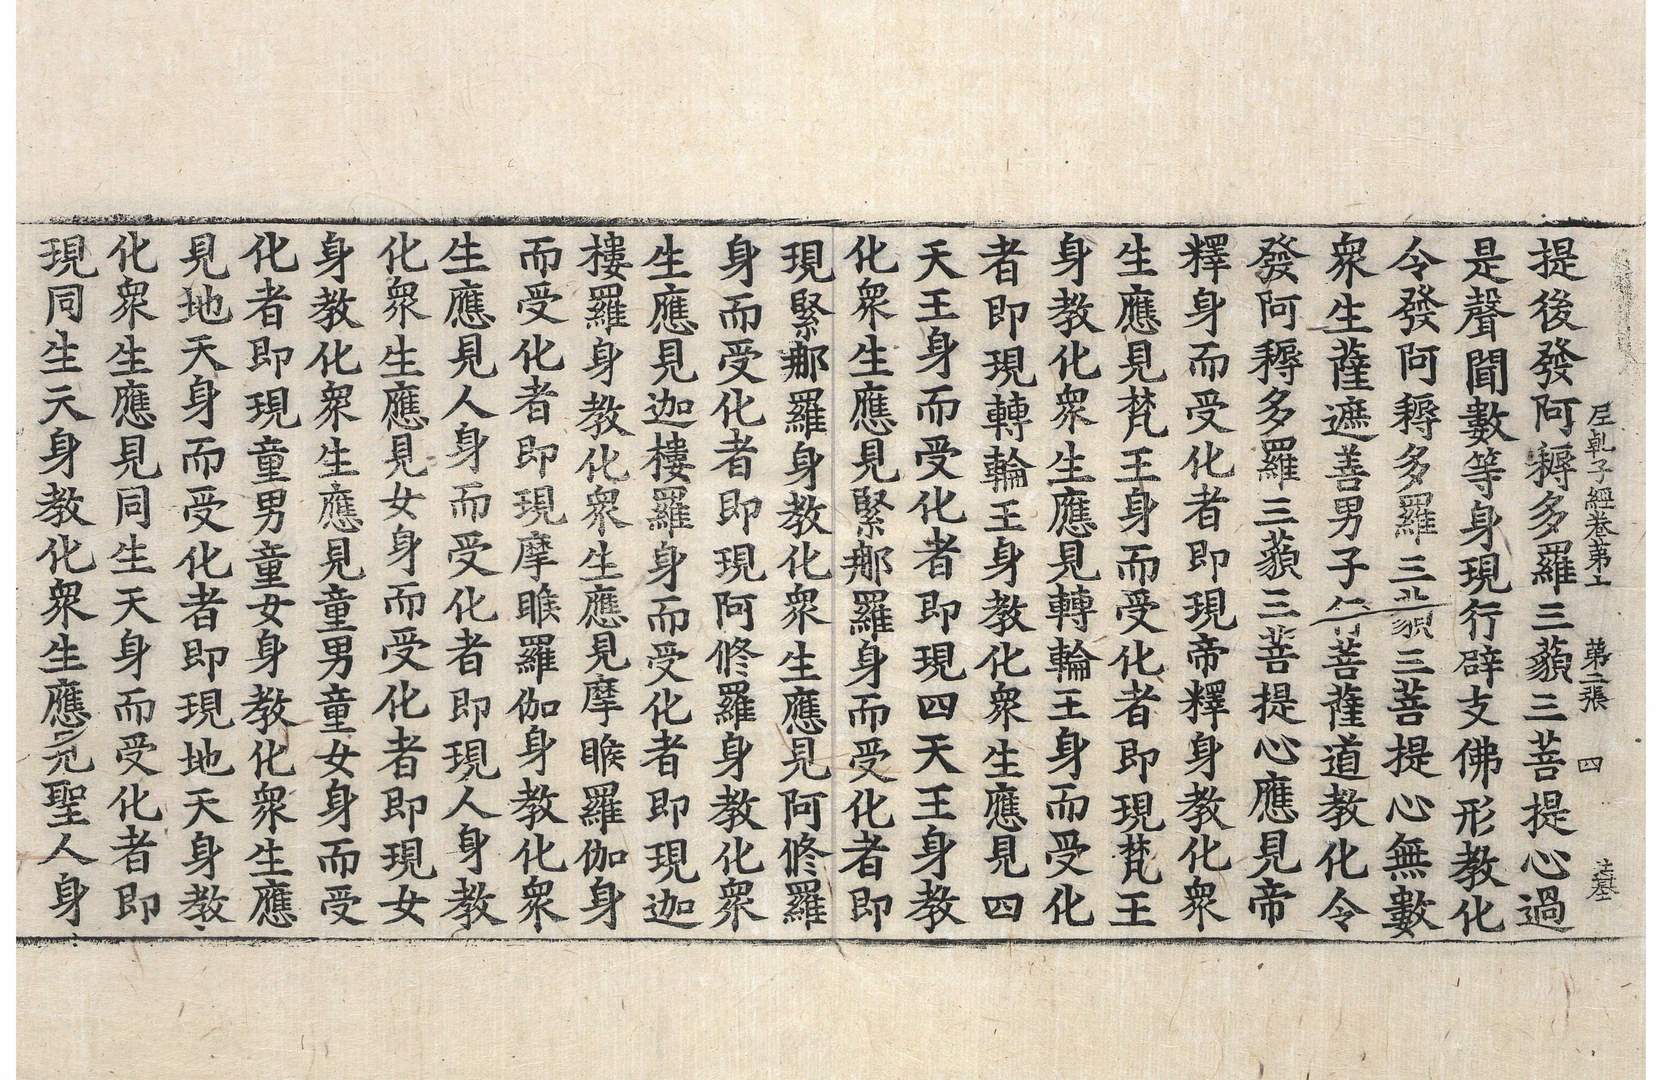 尼乹子經卷第十 第二張 四
提後發阿耨多羅三藐三菩提心過
是聲聞數等身現行辟支佛形教化
令發阿耨多羅三藐三菩提心無數
衆生薩遮善男子行菩薩道教化令
發阿耨多羅三藐三菩提心應見帝
釋身而受化者即現帝釋身教化衆
生應見梵王身而受化者即現梵王
身教化衆生應見轉輪王身而受化
者即現轉輪王身教化衆生應見四
天王身而受化者即現四天王身教
化衆生應見緊那羅身而受化者即
現緊那羅身教化衆生應見阿修羅
身而受化者即現阿修羅身教化衆
生應見迦樓羅身而受化者即現迦
樓羅身教化衆生應見摩睺羅伽身
而受化者即現摩睺羅伽身教化衆
生應見人身而受化者即現人身教
化衆生應見女身而受化者即現女
身教化衆生應見童男童女身而受
化者即現童男童女身教化衆生應
見地天身而受化者即現地天身教
化衆生應見同生天身而受化者即
現同生天身教化衆生應見聖人身